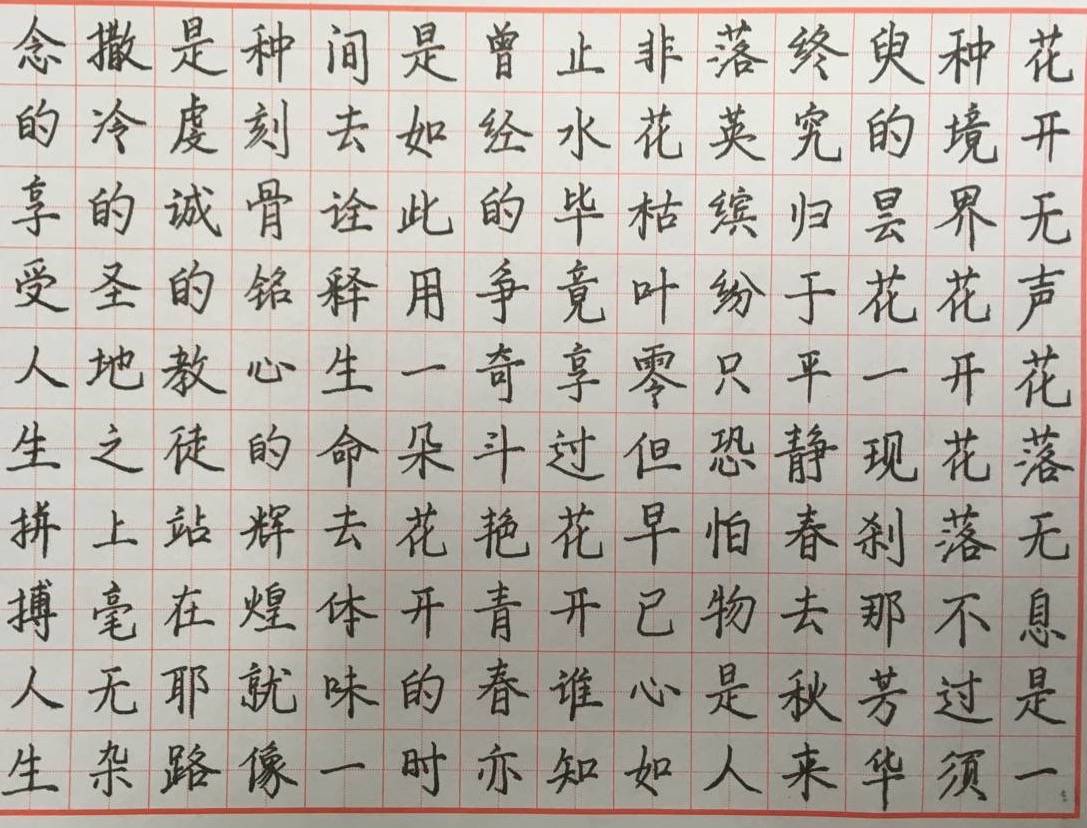 花开无声花落无息是一
种境界花开花落不过须
臾的昙花一现刹那芳华
终究归于平静春去秋来
落英缤纷只恐怕物是人
非花枯叶零但早已心如
止水毕竟享过花开谁知
曾经的争奇斗艳青春亦
是如此用一朵花开的时
间去诠释生命去体味一
种刻骨铭心的辉煌就像
是虔诚的教徒站在耶路
撒冷的圣地之上毫无杂
念的享受人生拼搏人生